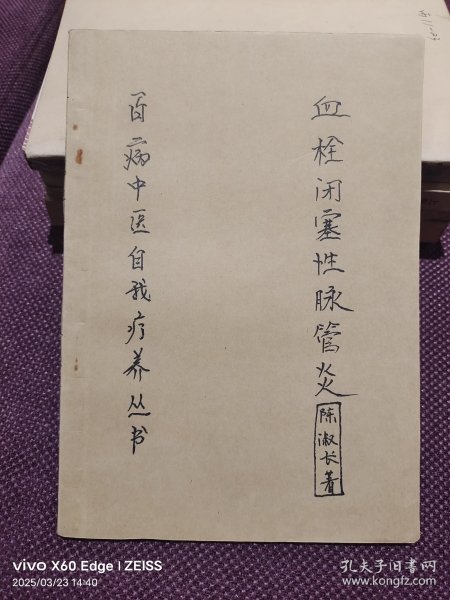 血栓闭塞性脉管炎
陈淑长著
百病中医自我疗养丛书
vivo X60 Edge | ZEISS
2025/03/23 14:40
孔夫子旧书网
www.kongfz.com